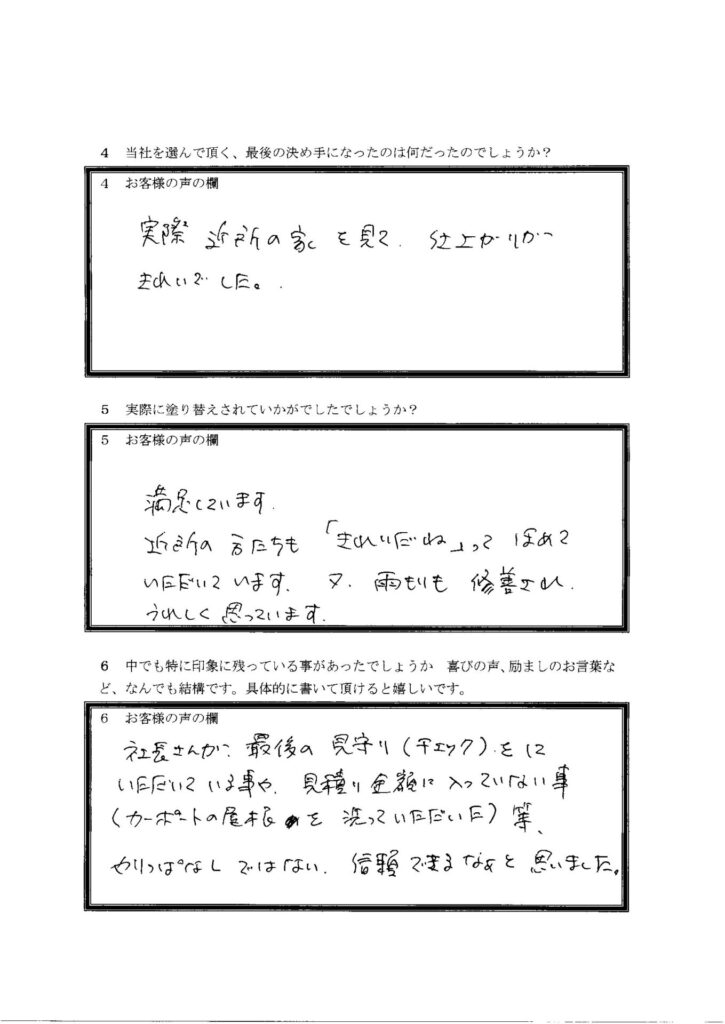 4 当社を選んで頂く、最後の決め手になったのは何だったのでしょうか?
4 お客様の声の欄
実際 近所の家を見て、仕上がりが
きれいでした。
5 実際に塗り替えされていかがでしたでしょうか?
5 お客様の声の欄
満足しています。
近所の方たちも「きれいだね」って ほめて
いただいています。又、雨もりも 修善され、
うれしく思っています。
6 中でも特に印象に残っている事があったでしょうか 喜びの声、励ましのお言葉な
ど、なんでも結構です。具体的に書いて頂けると嬉しいです。
6 お客様の声の欄
社長さんが、最後の見守り(チェック)をして
いただいている事や、見積り金額に入っていない事
(カーポートの屋根を洗っていただいた)等、
やりっぱなしではない、信頼できるなぁと思いました。